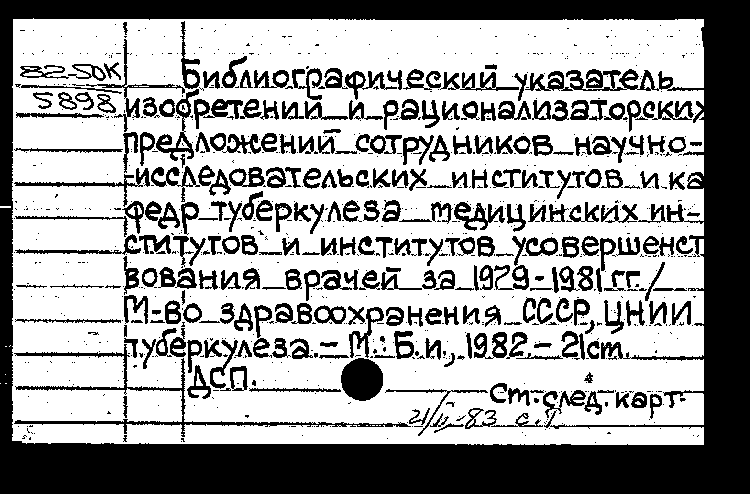 82-50К
5898
Библиографический указатель
изобретений и рационализаторских
предложений сотрудников научно-
-исследовательских институтов и ка
федр туберкулеза медицинских ин-
ститутов и институтов усовершенст
вования врачей за 1979-1981 гг. /
М-во здравоохранения СССР, ЦНИИ
туберкулеза. - М.: Б.и., 1982. - 21 ст.
ДСП.
Ст. след. карт.
21/II-83 с.